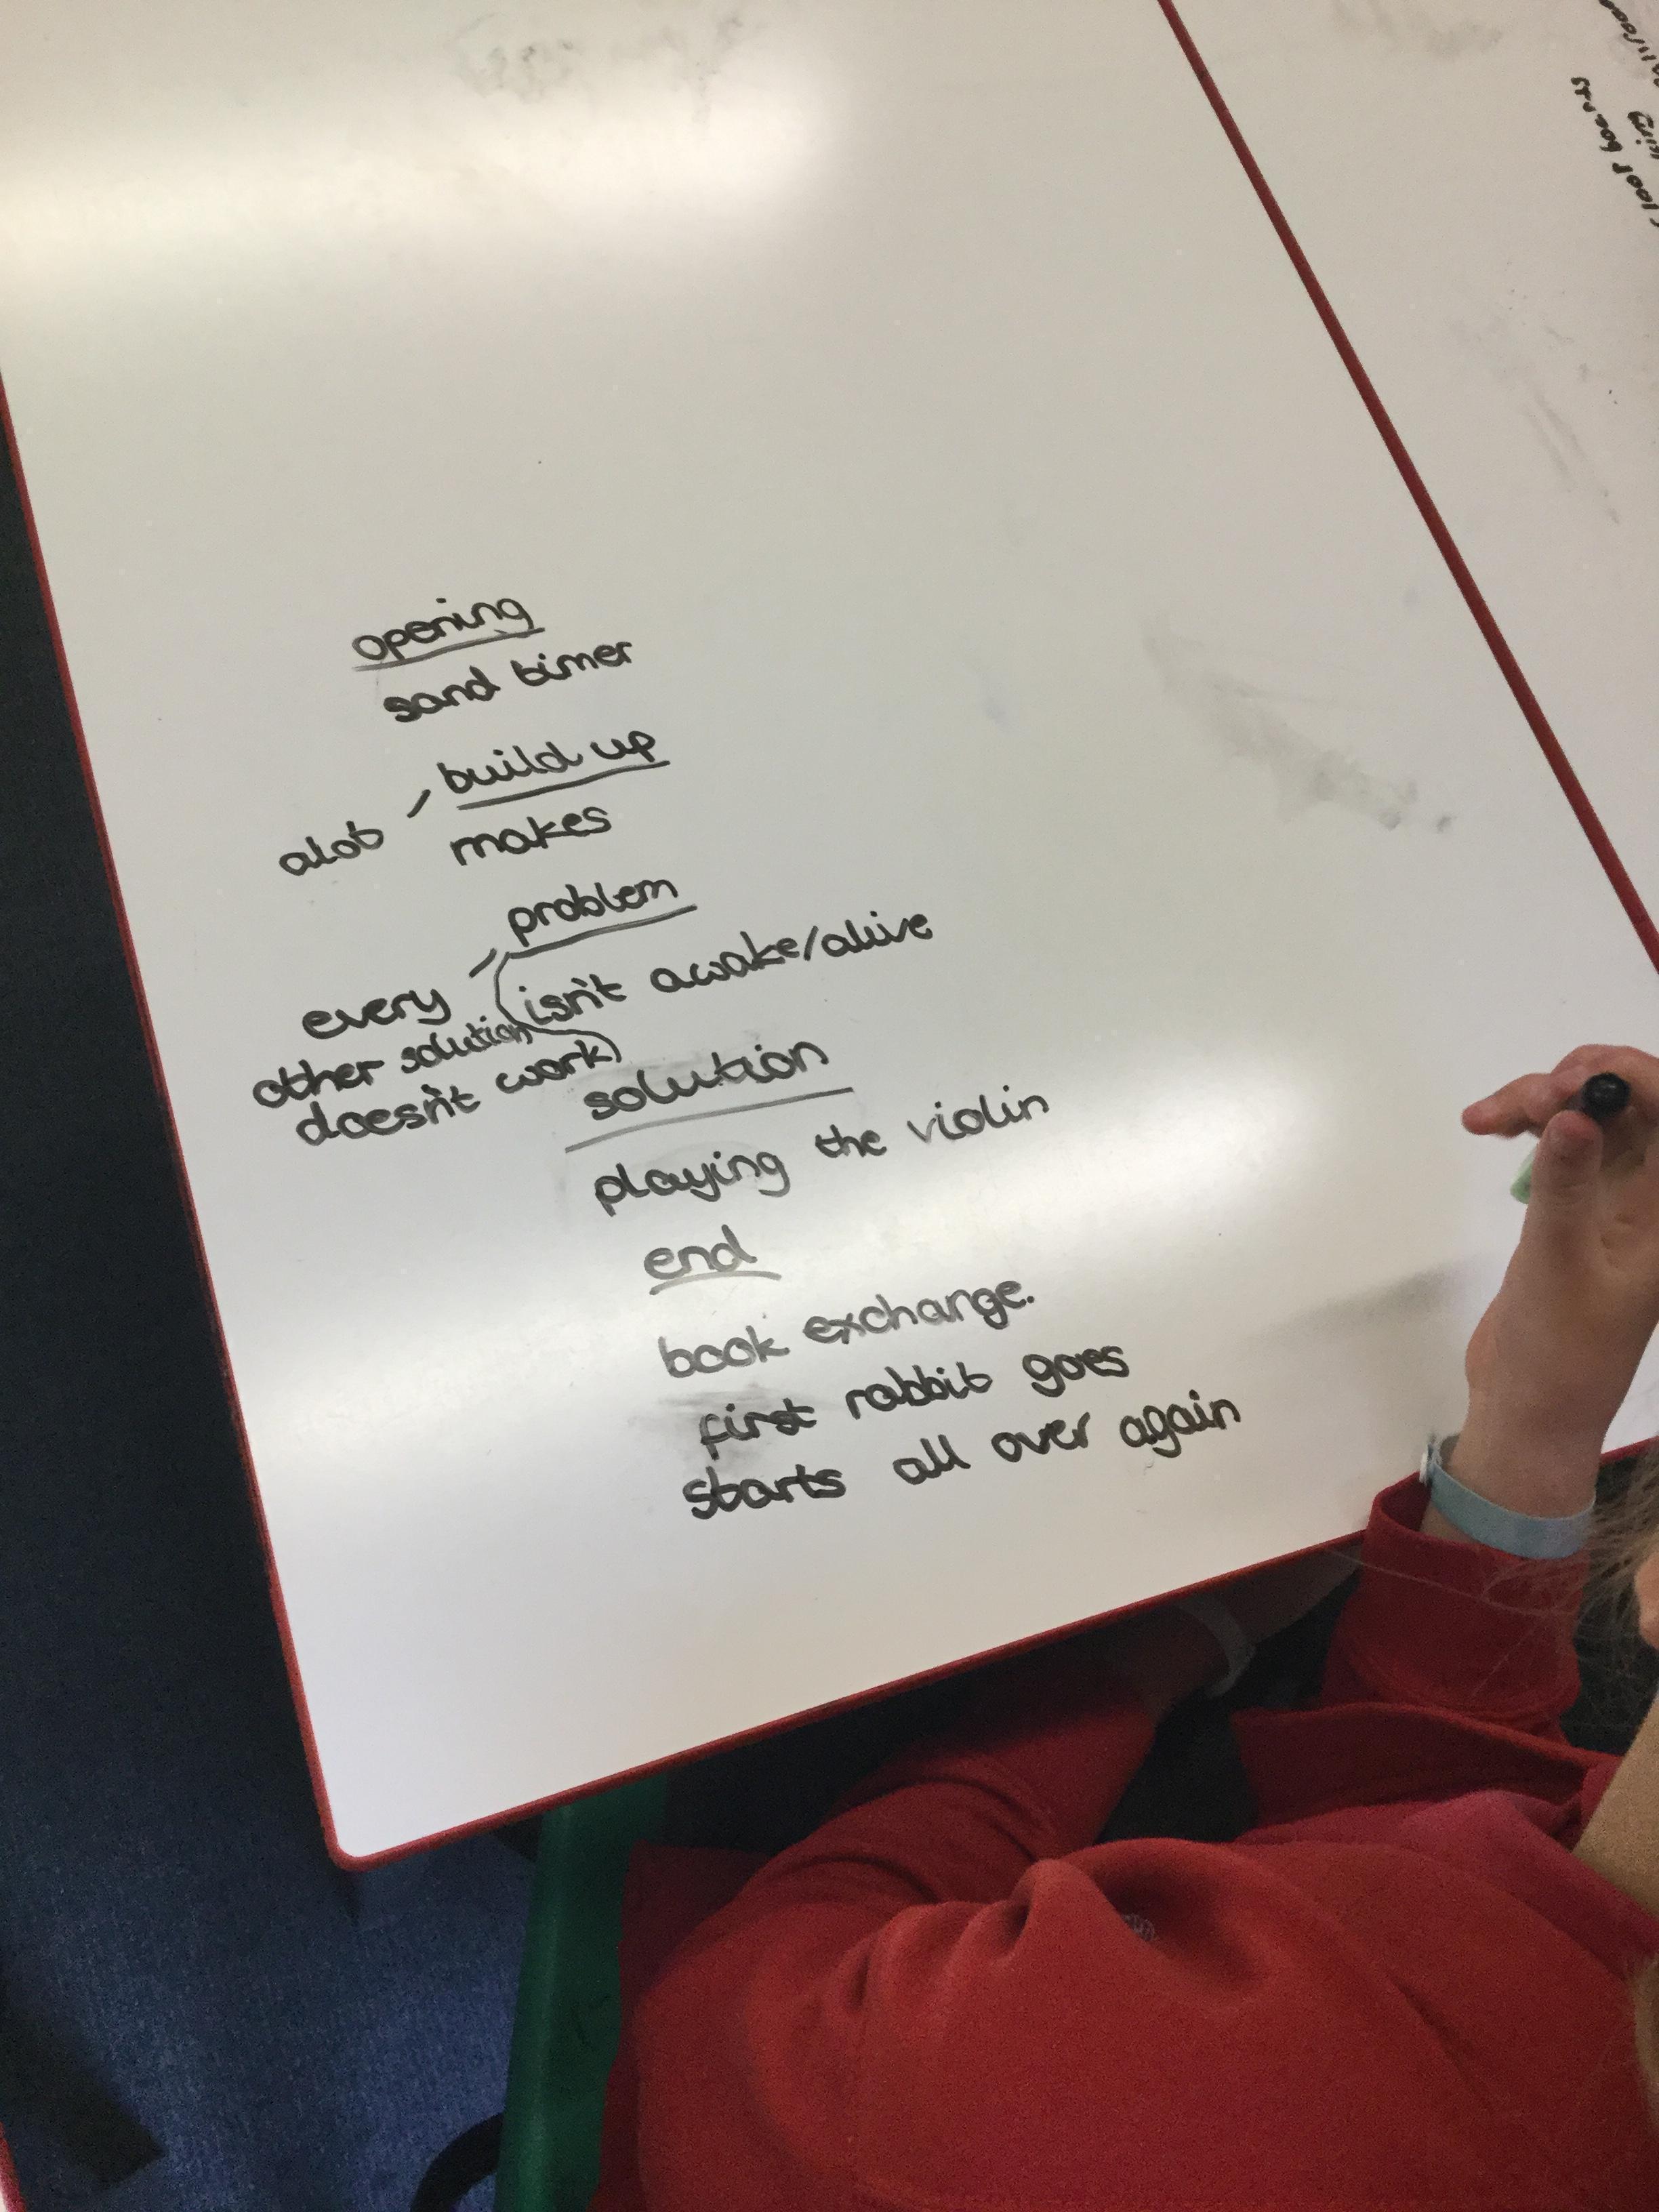 opening
sand timer
build up
alot
makes
problem
every
isn't awake/alive
other solution
doesn't work
solution
playing the violin
end
book exchange.
first rabbit goes
starts all over again